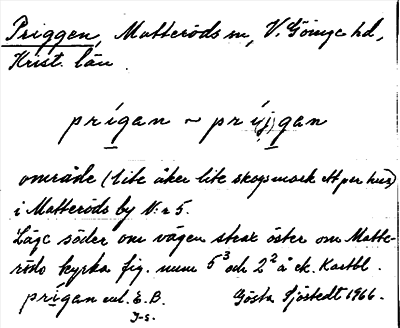 Priggen, Matteröds sn, V. Göinge hd,
Krist. län.
prígan ~ prí(j)gan
område (lite åker lite skogsmark ett par hus)
i Matteröds by Nr 5.
Läge söder om vägen strax öster om Matte-
röds kyrka fig. num 5³ och 2² å ek. Kartbl.
prígan enl. E. B. Gösta Sjöstedt 1966.
J-s.